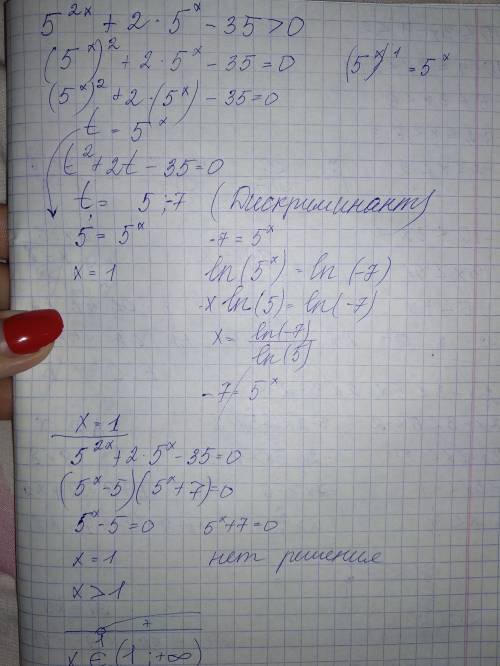 5^{2x} + 2 · 5^x - 35 > 0
(5^x)^2 + 2 · 5^x - 35 = 0
(5^x)^1 = 5^x
(5^x)^2 + 2 · (5^x) - 35 = 0
t = 5^x
t^2 + 2t - 35 = 0
t = 5 ; -7 (Дискриминант)
5 = 5^x
-7 = 5^x
x = 1
ln(5^x) = ln(-7)
x ln(5) = ln(-7)
x = ln(-7) / ln(5)
-7 = 5^x
x = 1
5^{2x} + 2 · 5^x - 35 = 0
(5^x - 5)(5^x + 7) = 0
5^x - 5 = 0
5^x + 7 = 0
x = 1
нет решения
x > 1
1
x ∈ (1 ; +∞)